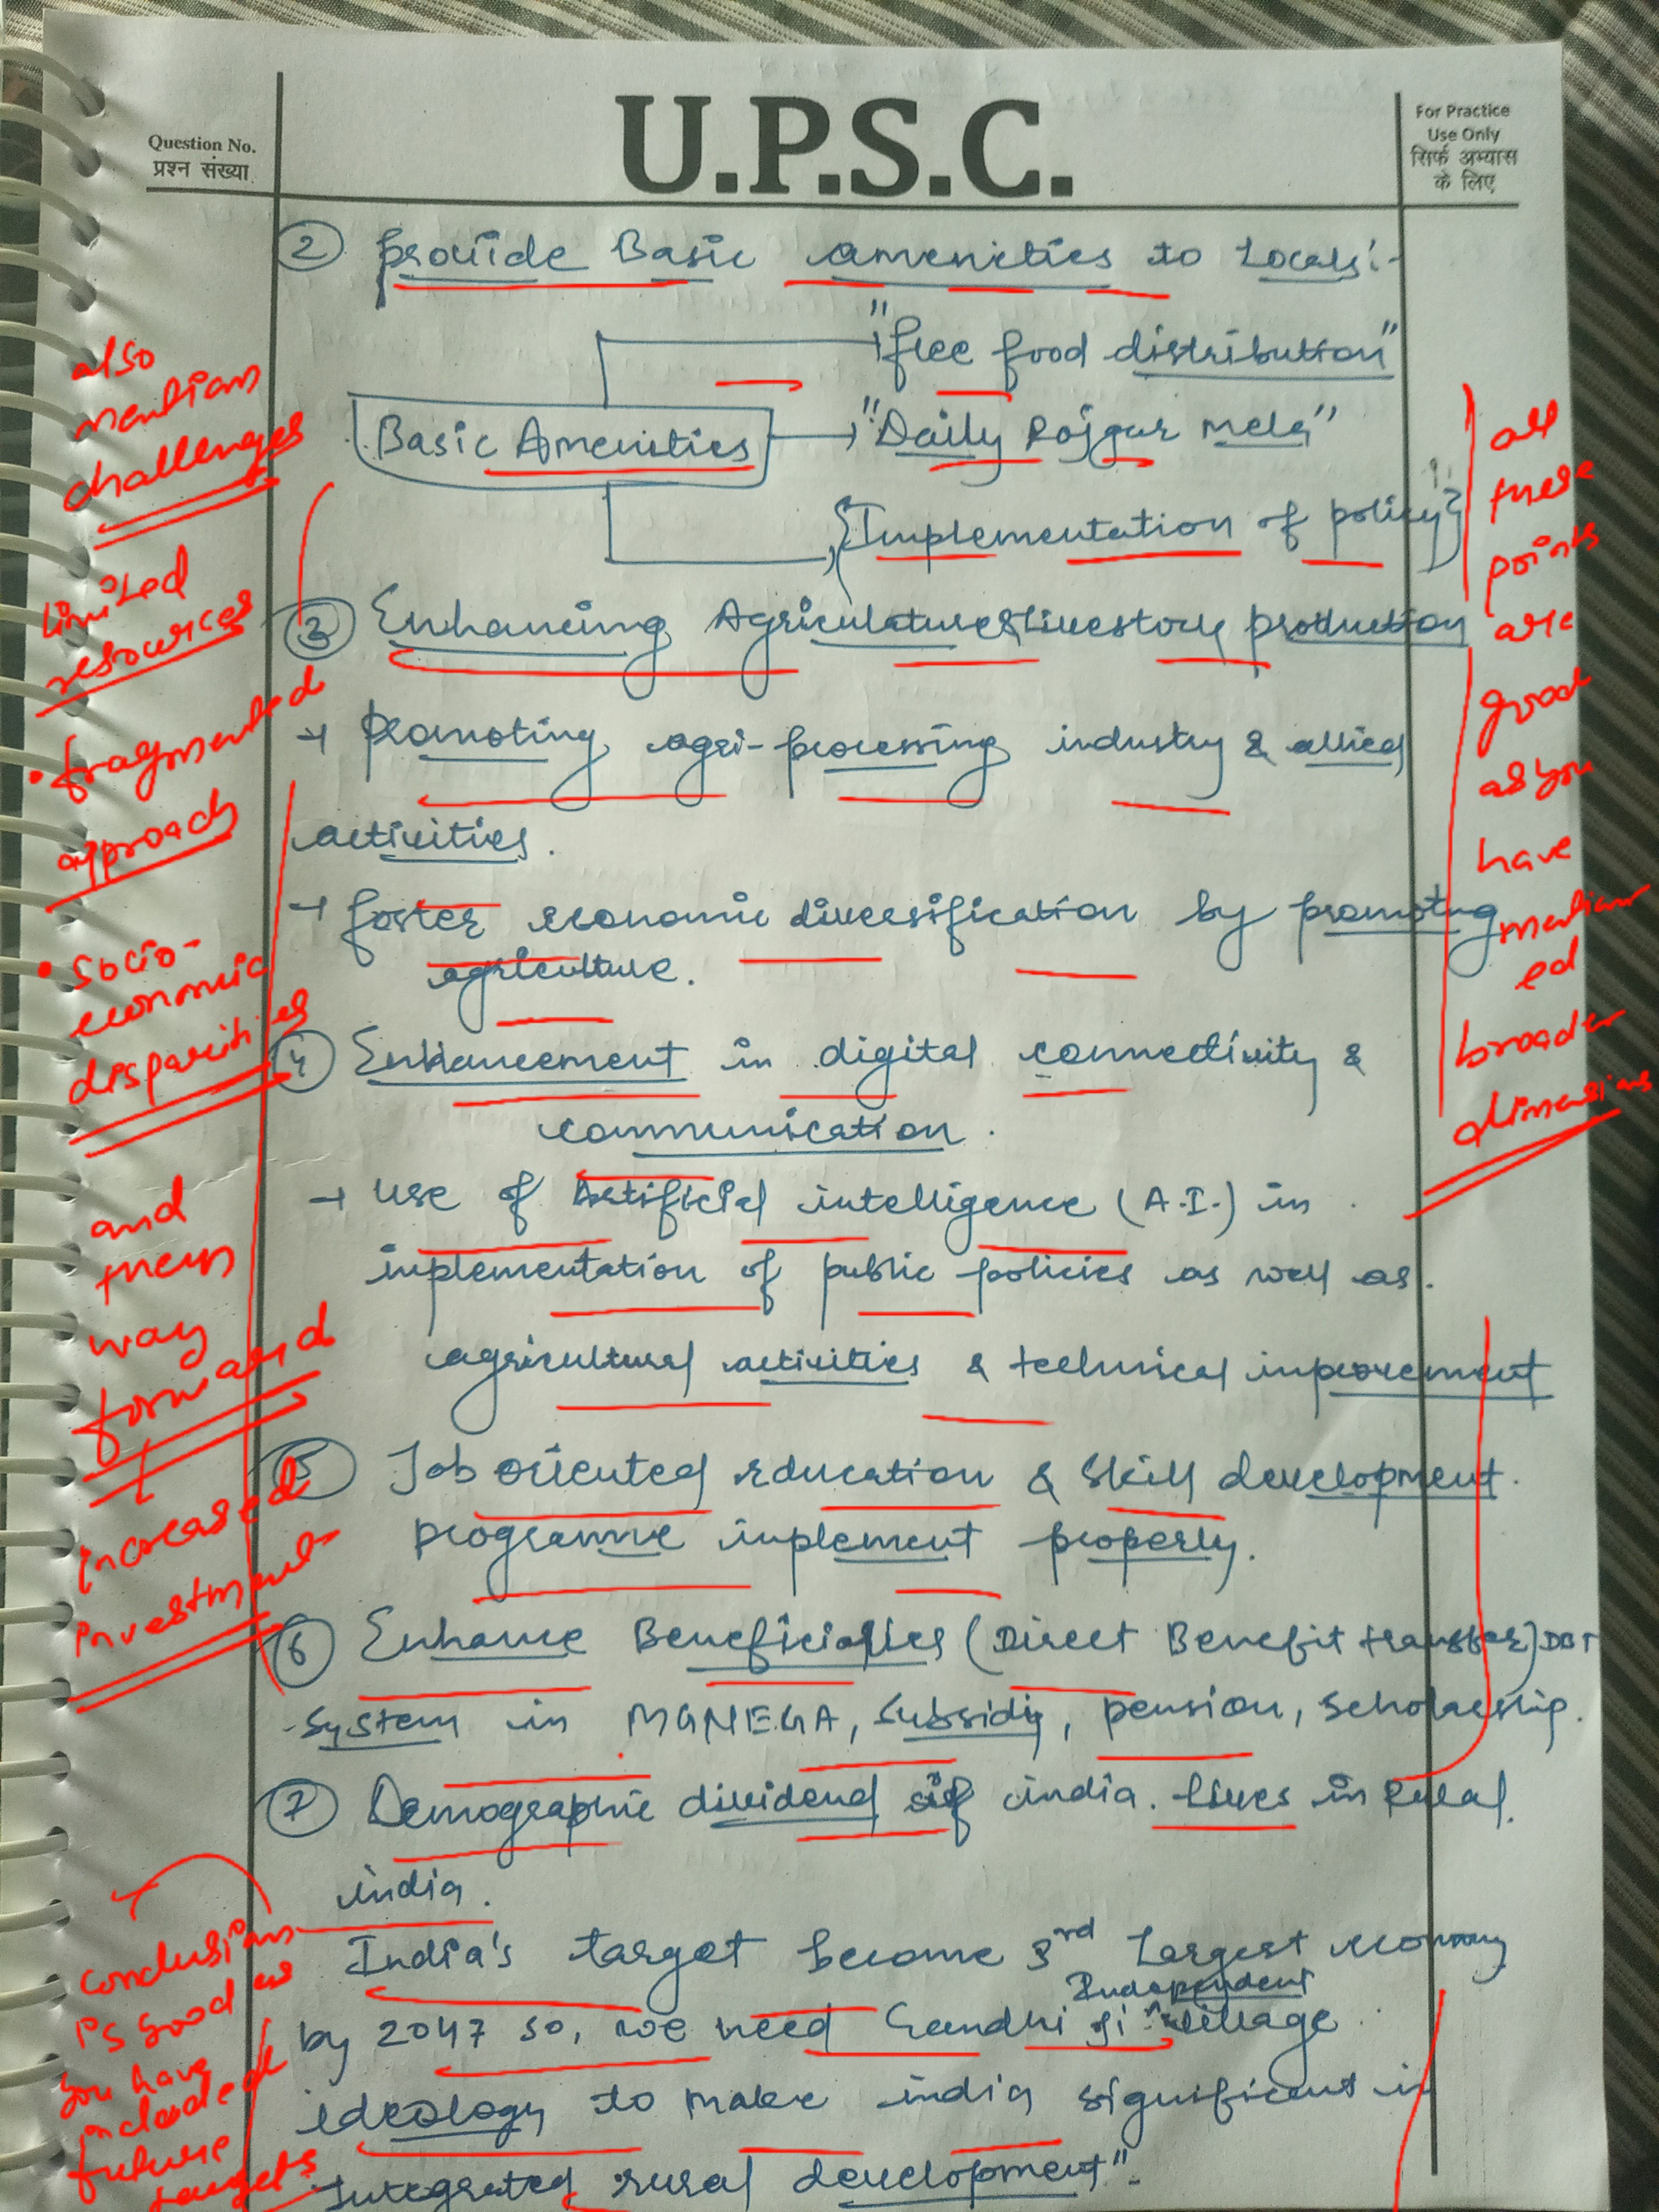 Question No.
प्रश्न संख्या
U.P.S.C.
For Practice
Use Only
सिर्फ अभ्यास
के लिए
② provide Basic amenities to Locals:-
"free food distribution"
Basic Amenities
"Daily Rojgar mela"
{Implementation of policy}
③ Enhancing Agriculture & Livestock production
→ Promoting agri-processing industry & allied
activities.
→ foster economic diversification by promoting
agriculture.
④ Enhancement in digital connectivity &
communication.
→ Use of Artificial intelligence (A.I.) in
implementation of public policies as well as
agricultural activities & technical improvement
⑤ Job oriented education & Skill development
programme implement properly.
⑥ Enhance Beneficiaries (Direct Benefit transfer) DBT
system in MGNEGA, Subsidy, pension, Scholarship.
⑦ Demographic dividend of india. lives in Rural
india.
India's target become 3rd Largest economy
Independent
by 2047 so, we need Gandhi ji "village
ideology to make india significant in
Integrated rural development".
also
mention
challenges
limited
resources
• fragmented
approach
• socio-
economic
disparities
and
then
way
forward
increased
investment
conclusion
is good as
you have
included
future
targets
all
these
points
are
good
as you
have
mention
ed
broader
dimensions